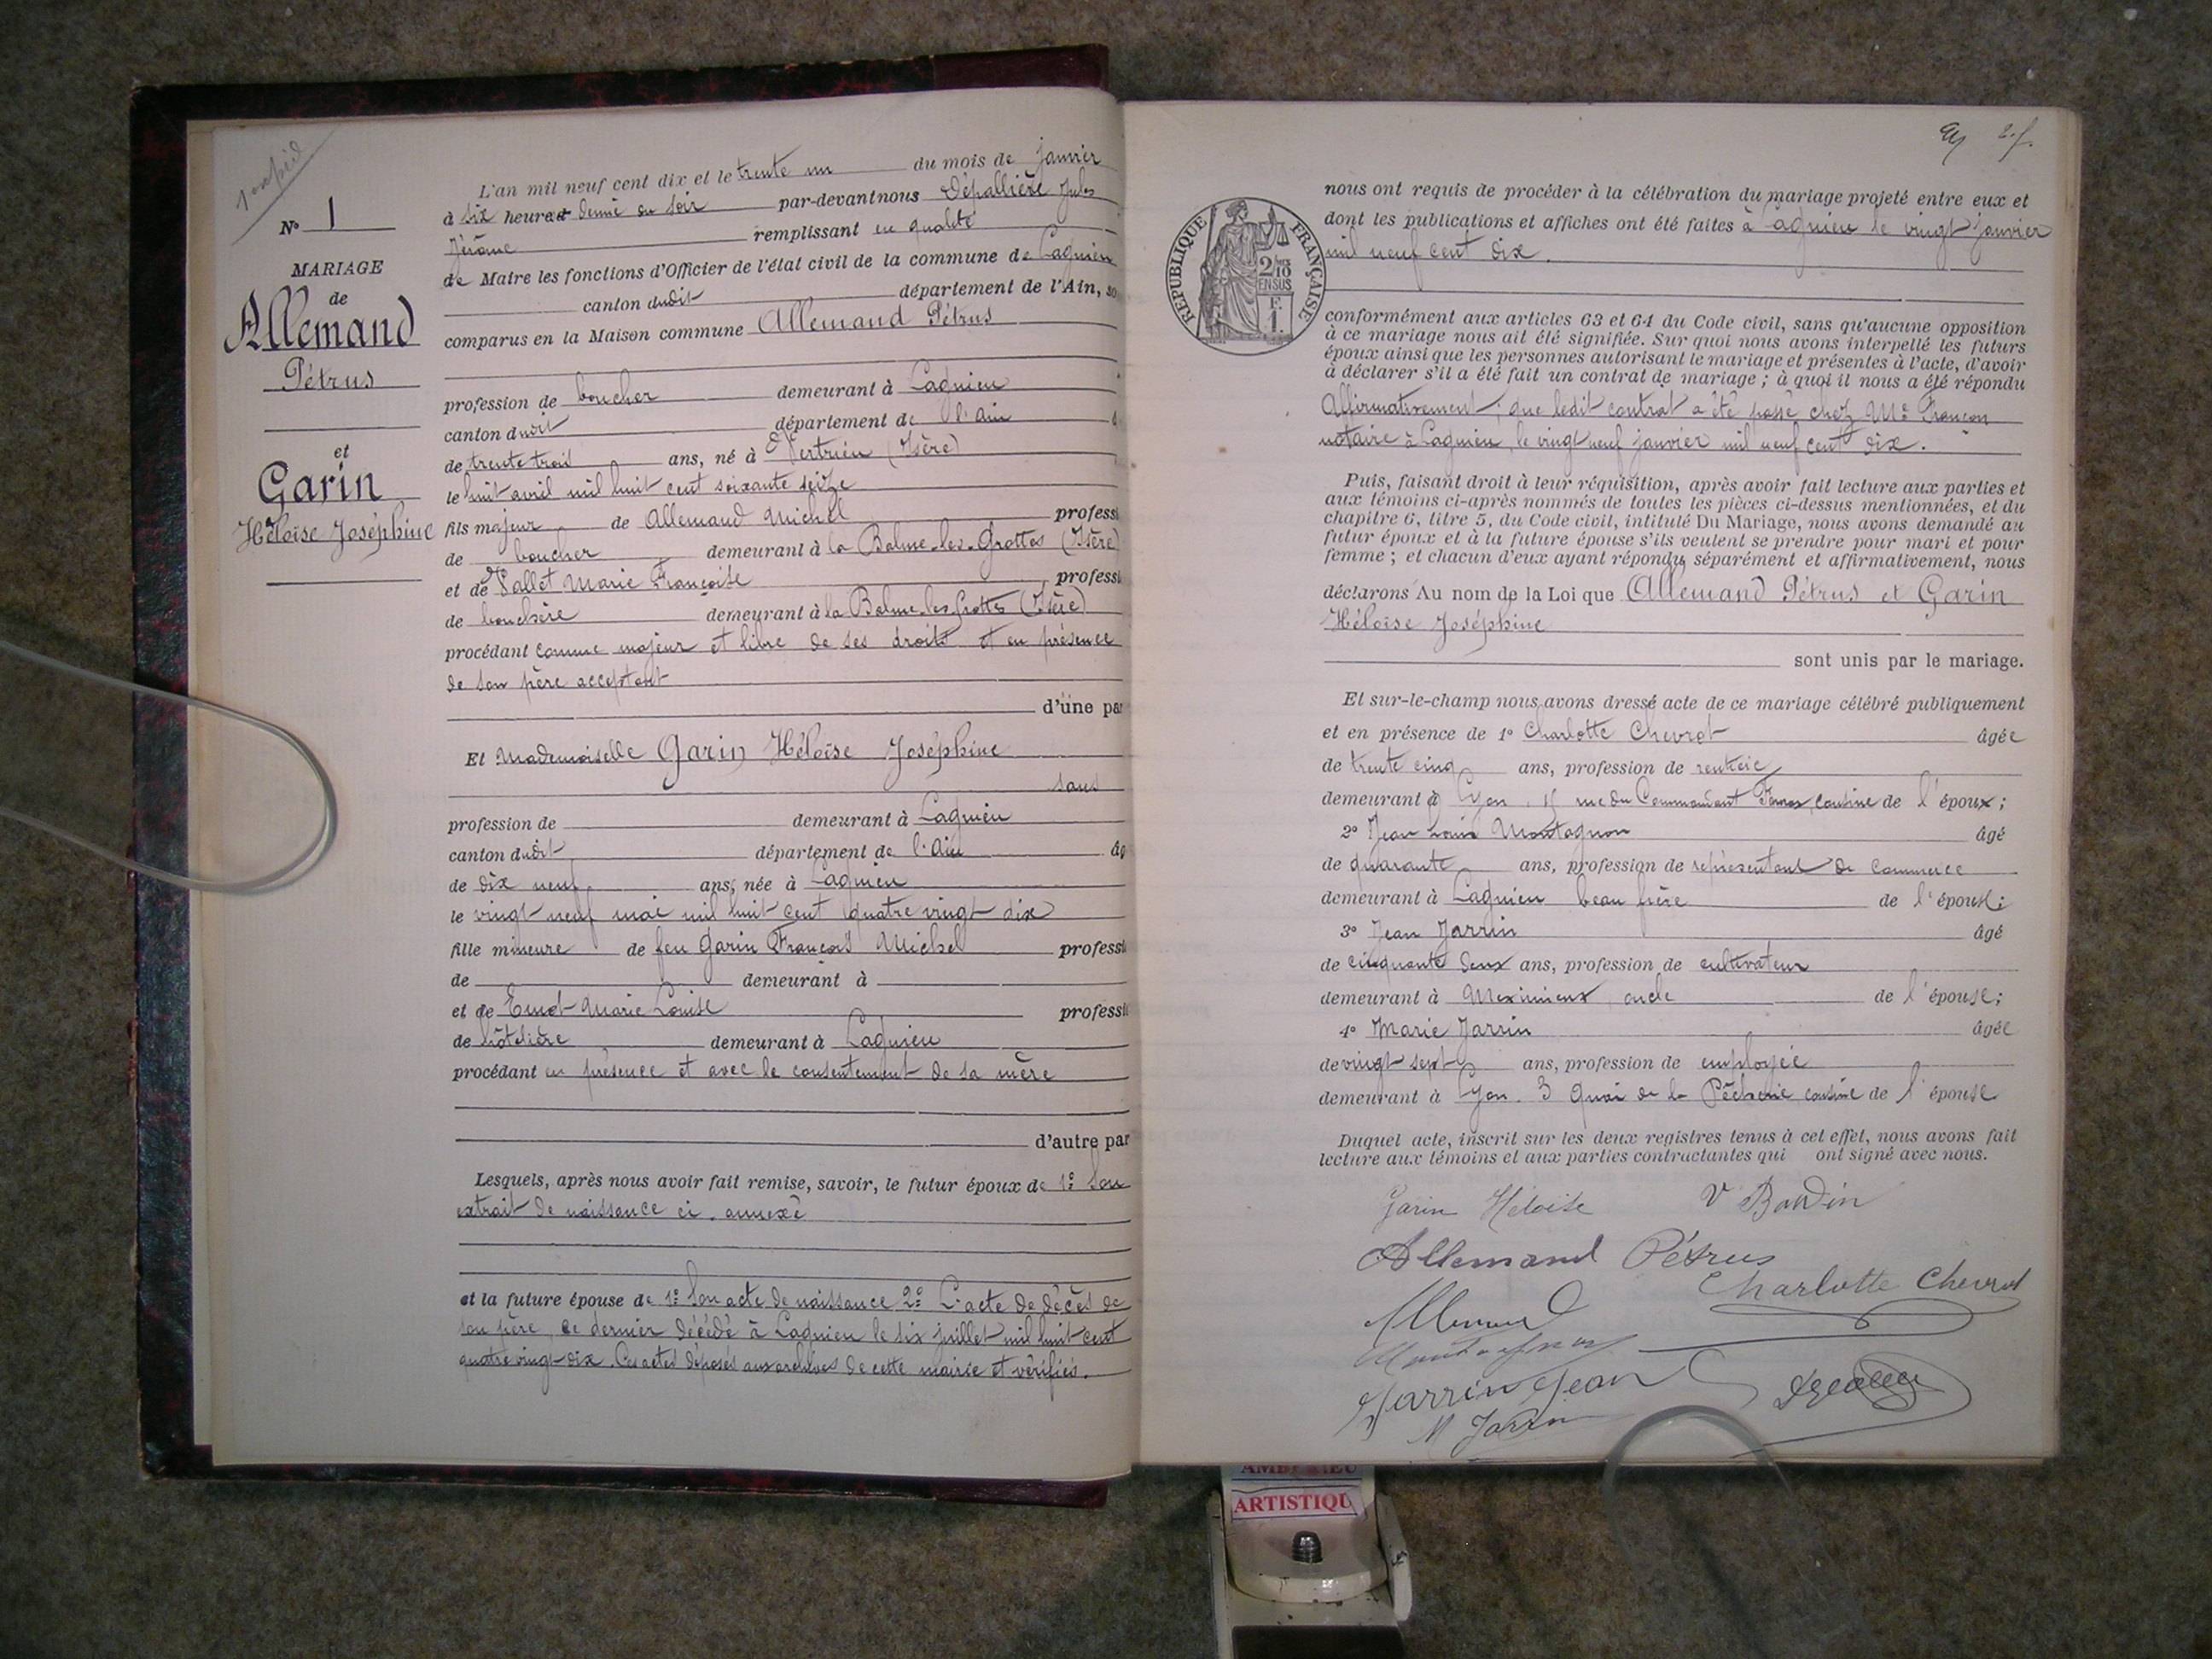 1 expéd
N° 1
MARIAGE
de
Allemand
Pétrus
et
Garin
Héloïse Joséphine
L'an mil neuf cent dix et le trente un du mois de janvier
à six heures et demie du soir par-devant nous Dépallière Jules
Jérôme remplissant en qualité
de Maire les fonctions d'Officier de l'état civil de la commune de Lagnieu
canton dudit département de l'Ain, so
comparus en la Maison commune Allemand Pétrus
profession de boucher demeurant à Lagnieu
canton dudit département de l'Ain
de trente trois ans, né à Vertrieu (Isère)
le huit avril mil huit cent soixante seize
fils majeur de Allemand Michel professi
de boucher demeurant à la Balme-les-Grottes (Isère)
et de Vallet Marie Françoise professi
de bouchère demeurant à la Balme-les-Grottes (Isère)
procédant comme majeur et libre de ses droits et en présence
de son père acceptant
d'une par
Et Mademoiselle Garin Héloïse Joséphine
sans
profession de demeurant à Lagnieu
canton dudit département de l'Ain âg
de dix neuf ans, née à Lagnieu
le vingt neuf mai mil huit cent quatre vingt dix
fille mineure de feu Garin François Michel professi
de demeurant à
et de Marie Louise professi
de hôtelière demeurant à Lagnieu
procédant en présence et avec le consentement de sa mère
d'autre par
Lesquels, après nous avoir fait remise, savoir, le futur époux de 1° Son
extrait de naissance ci-annexé
et la future épouse de 1° Son acte de naissance 2° L'acte de décès de
son père, ce dernier décédé à Lagnieu le six juillet mil huit cent
quatre vingt-dix. Ces actes déposés aux archives de cette mairie et vérifiés.
nous ont requis de procéder à la célébration du mariage projeté entre eux et
dont les publications et affiches ont été faites à Lagnieu le vingt janvier
mil neuf cent dix.
RÉPUBLIQUE FRANÇAISE
2/10
EN SUS
F.
1.
conformément aux articles 63 et 64 du Code civil, sans qu'aucune opposition
à ce mariage nous ait été signifiée. Sur quoi nous avons interpellé les futurs
époux ainsi que les personnes autorisant le mariage et présentes à l'acte, d'avoir
à déclarer s'il a été fait un contrat de mariage ; à quoi il nous a été répondu
Affirmativement ; que ledit contrat a été passé chez Me Françon
notaire à Lagnieu, le vingt neuf janvier mil neuf cent dix.
Puis, faisant droit à leur réquisition, après avoir fait lecture aux parties et
aux témoins ci-après nommés de toutes les pièces ci-dessus mentionnées, et du
chapitre 6, titre 5, du Code civil, intitulé Du Mariage, nous avons demandé au
futur époux et à la future épouse s'ils veulent se prendre pour mari et pour
femme ; et chacun d'eux ayant répondu séparément et affirmativement, nous
déclarons Au nom de la Loi que Allemand Pétrus et Garin
Héloïse Joséphine
sont unis par le mariage.
Et sur-le-champ nous avons dressé acte de ce mariage célébré publiquement
et en présence de 1° Charlotte Chevrot âgée
de trente cinq ans, profession de rentière
demeurant à Lyon, rue du Commandant cousine de l'époux ;
2° Jean Louis Montagnon âgé
de quarante ans, profession de représentant de commerce
demeurant à Lagnieu beau frère de l'épouse ;
3° Jean Jarrin âgé
de cinquante deux ans, profession de cultivateur
demeurant à Meximieux, oncle de l'épouse ;
4° Marie Jarrin âgée
de vingt sept ans, profession de employée
demeurant à Lyon. 3 Quai de la Pêcherie, cousine de l'épouse
Duquel acte, inscrit sur les deux registres tenus à cet effet, nous avons fait
lecture aux témoins et aux parties contractantes qui ont signé avec nous.
Garin Héloïse
Allemand Pétrus
Charlotte Chevrot
Allemand
Montagnon
Jarrin Jean
M Jarrin
ARTISTIQU